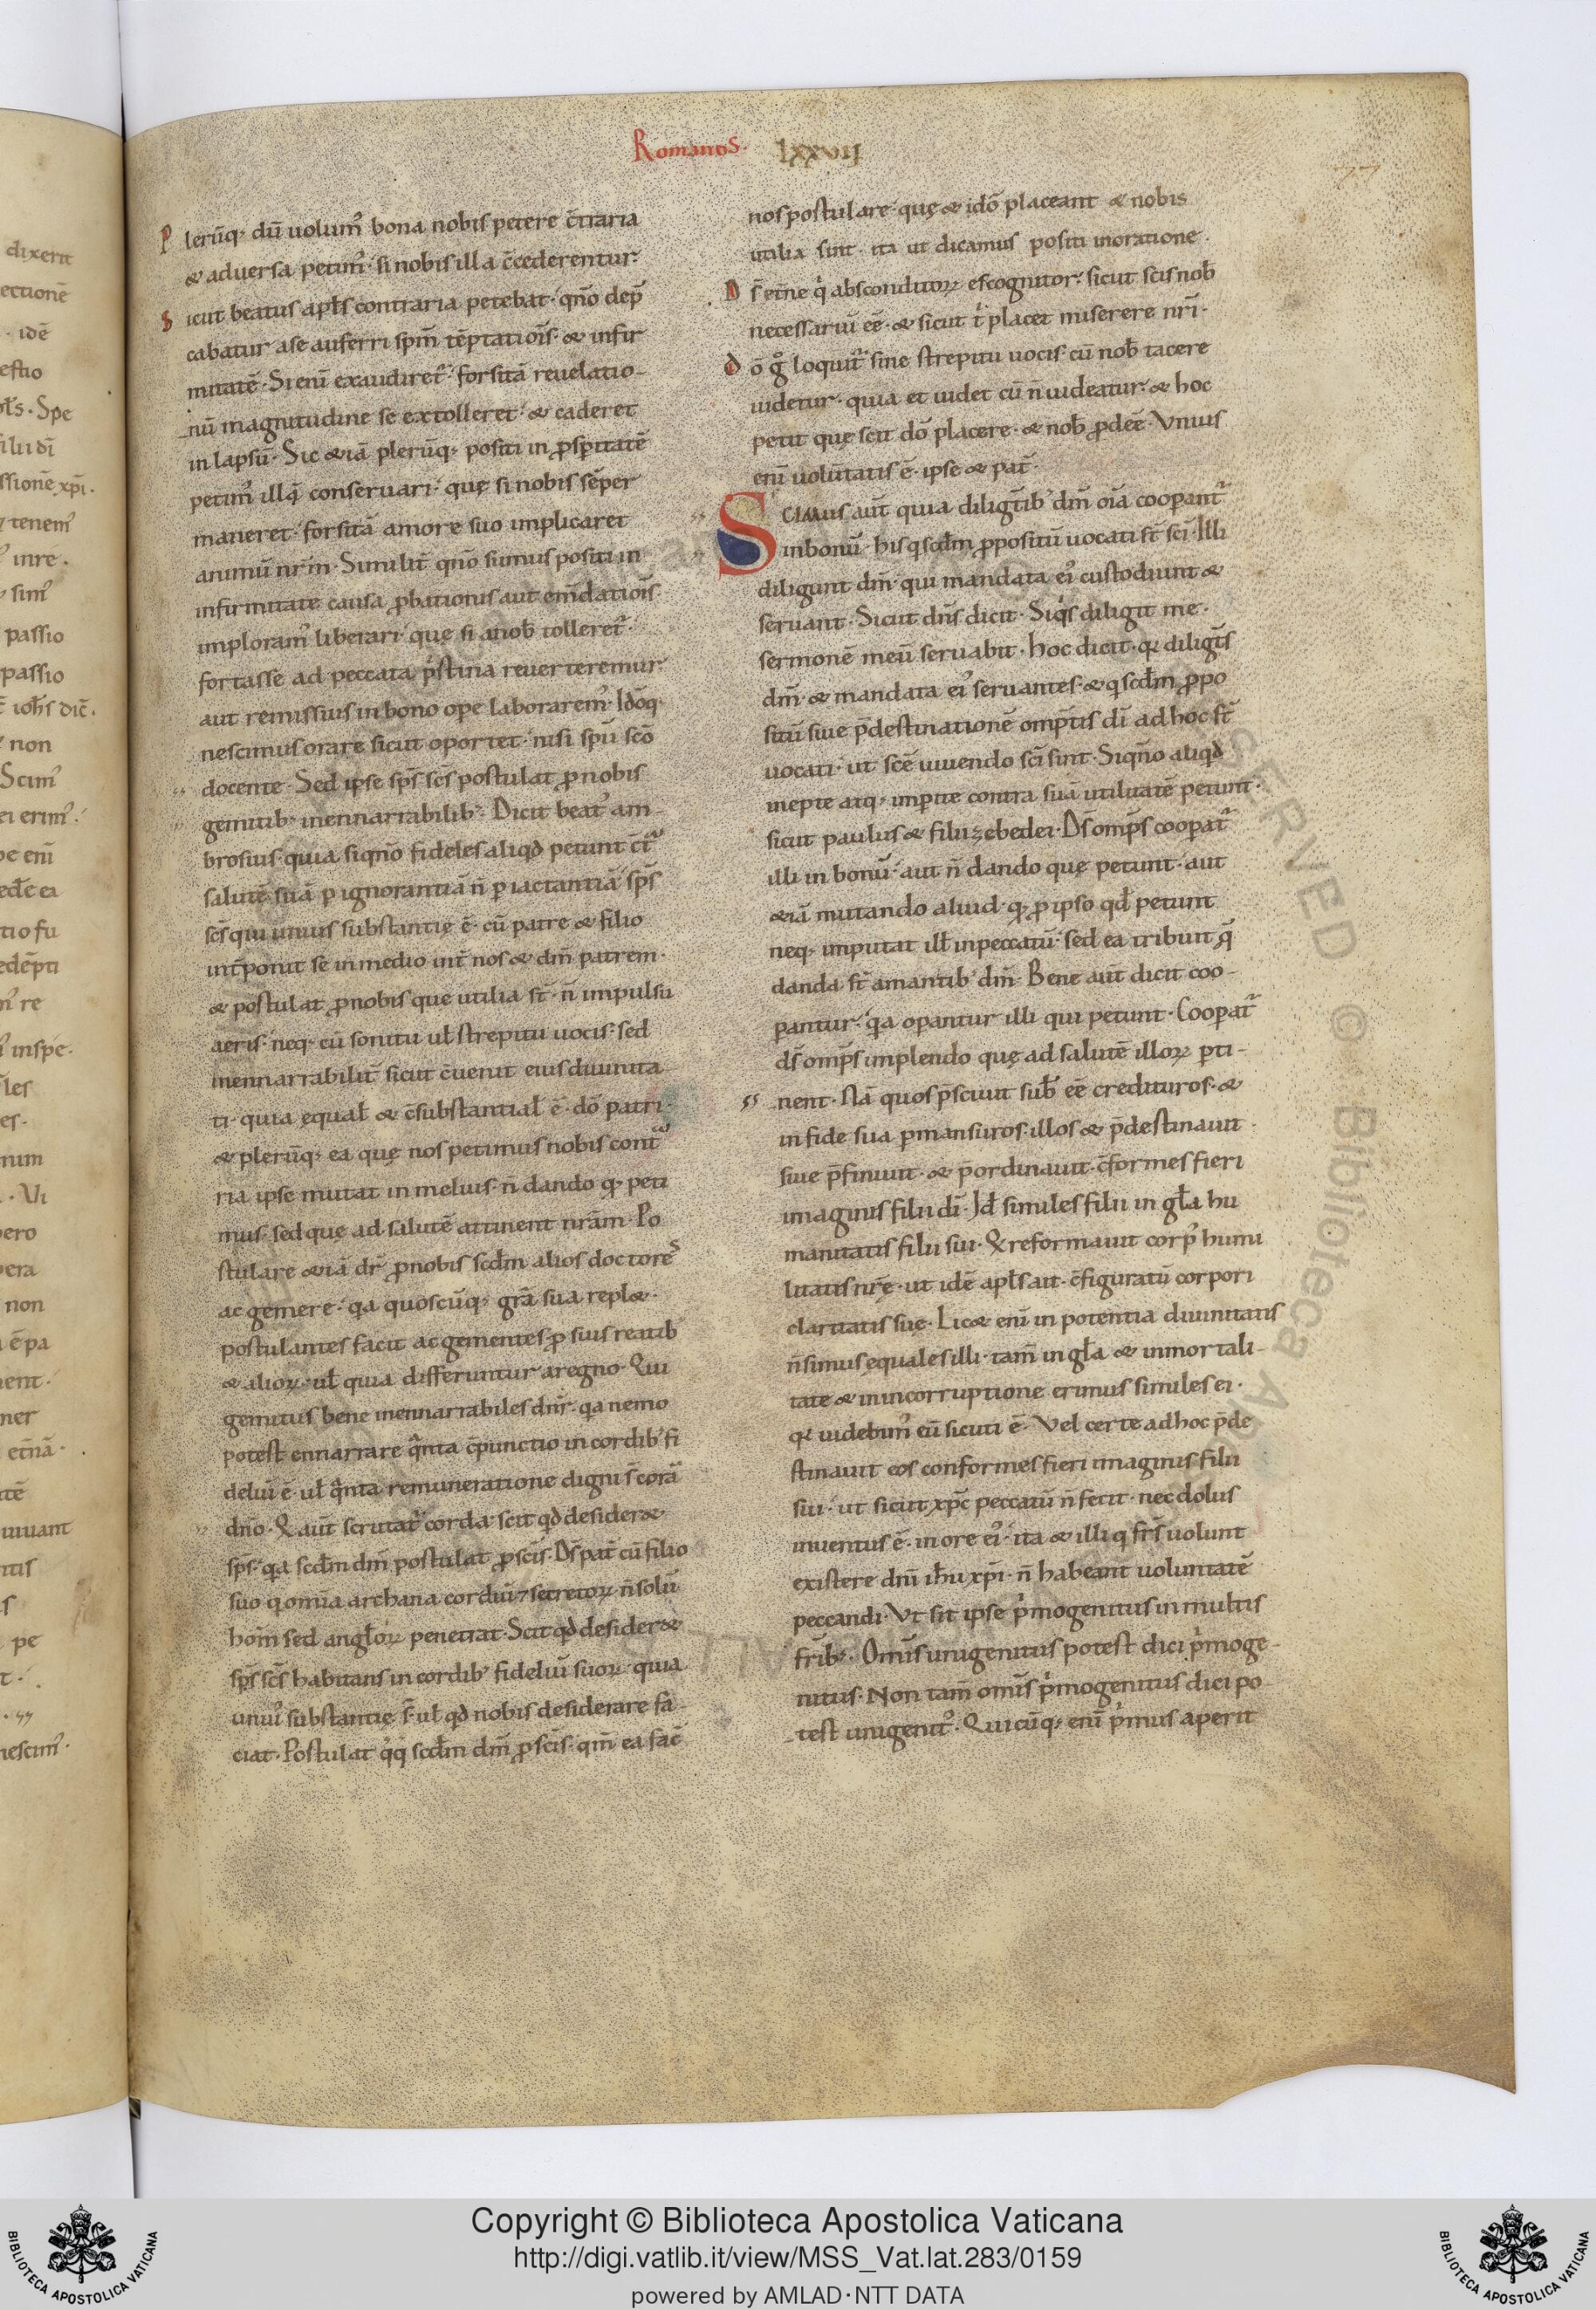 Romanos. lxxvii
77
Plerūq; dū uolum᷒ bona nobis petere c̄traria
& aduersa petim᷒. si nobis illa c̄cederentur.
Sicut beatus apl̄s contraria petebat. qn̄o dep̄
cabatur a se auferri spm̄ tēptatiōis. & infir
mitatē. Si eni exaudiret᷑. forsitā reuelatio-
nū magnitudine se extolleret. & caderet
in lapsū. Sic &iā plerūq; positi in ꝓsꝑitatē
petim᷒ illā conseruari. quę si nobis sēper
maneret. forsitā amore suo implicaret
animū nr̄m. Similit̄ qn̄o sumus positi in
infirmitate causa ꝓbationis aut em̄datiōis.
imploram᷒ liberari. que si a nob̄ tolleret᷑.
fortasse ad peccata p̓stina reuerteremur
aut remissius in bono ope laborarem᷒. Idōq;
nescimus orare sicut oportet. nisi spū scō
docente. Sed ipse sp̄s sc̄s postulat ꝓ nobis
gemitib᷒ inennarrabilib᷒. Dicit beat᷒ am
brosius. quia siqn̄o fideles aliqd̄ petunt c̄tͣ
salutē suā ꝑ ignorantiā n̄ ꝑ iactantiā. sp̄s
sc̄s qui unius substantię ē. cū patre & filio
int̄ponit se in medio int̄ nos & dm̄ patrem.
& postulat ꝓ nobis que utilia st̄. n̄ impulsu
aeris. neq; cū sonitu ul̄ strepitu uocis. sed
inennarrabilit̄ sicut c̄uenit eius diuinita
ti. quia ęqual̄ & c̄substantial̄ ē. dō patri.
& plerūq; ea quę nos petimus nobis contͣ
ria ipse mutat in melius. n̄ dando q; peti
mus. sed quę ad salutē attinent nrām. Po
stulare &iā dr̄ ꝓ nobis scd̄m alios doctores
ac gemere. qa quoscūq; grā sua repl&.
postulantes facit ac gementes ꝓ suis reatib᷒
& alioꝝ. ul̄ quia differuntur a regno. Qui
gemitus bene inennarrabiles dnr̄. qa nemo
potest ennarrare qͣnta c̄punctio in cordib᷒ fi
deliū ē. ul̄ qͣnta remuneratione digni s̄ corā
dn̄o. Q aut̄ scrutat᷑ corda. scit qd̄ desider&
sp̄s. qa scd̄m dm̄ postulat ꝓ sc̄is. Ds pat̄ cū filio
suo q omīa archana cordiū ⁊ secretoꝝ n̄ solū
hom̄ sed angl̄oꝝ penetrat. Scit qd̄ desider&
sp̄s sc̄s habitans in cordib᷒ fideliū suoꝝ. quia
unui᷒ substantię s̄. ul̄ qd̄ nobis desiderare fa-
ciat. Postulat q̓q̄ scd̄m dm̄ ꝓ sc̄is. qm̄ ea fac̄
nos postulare. quę & idō placeant & nobis
utilia sint. ita ut dicamus positi in oratione.
Ds̄ etn̄e q̓ absconditoꝝ es cognitor. sicut scis nob̄
necessariū eē. & sicut t̓ placet miserere nr̄i.
dō gͦ loquit᷑ sine strepitu uocis. cū nob̄ tacere
uidetur. quia et uidet cū n̄ uideatur. & hoc
petit quę scit dō placere. & nob̄ ꝓdeē. Vnius
eni uolūtatis ē. ipse & pat̄.
Scimus aut̄ quia diligt̄ib᷒ dm̄ oīa cooꝑant᷑
in bonū. his q scd̄m ꝓpositū uocati st̄ sc̄i. Illi
diligunt dm̄. qui mandata ei᷒ custodiunt &
seruant. Sicut dn̄s dicit. Siqͥs diligit me.
sermonē meū seruabit. hoc dicit. qꝛ diligt̄s
dm̄. & mandata ei᷒ seruantes. & q scd̄m ꝓpo
sitū siue p̄destinationē omp̄tis dī ad hoc st̄
uocati. ut scē uiuendo sc̄i sint. Siqn̄o aliqd̄
inepte atq; imꝑite contra suā utilitatē petunt.
sicut paulus & filii zebedei. Ds omp̄s cooꝑat᷑
illi in bonū. aut n̄ dando quę petunt. aut
&iā mutando aliud. q; ꝓ ipso qd̄ petunt
neq; imputat ill̄ in peccatū. sed ea tribuit q̄
danda st̄ amantib᷒ dm̄. Bene aut̄ dicit coo-
ꝑantur. qa oꝑantur illi qui petunt. Cooꝑat᷑
ds̄ omp̄s implendo quę ad salutē illoꝝ ꝑti-
nent. Nā quos p̄sciuit sub̄ eē credituros. &
in fide sua ꝑmansuros. illos & p̄destinauit.
siue p̄finiuit. & p̄ordinauit. c̄formes fieri
imaginis filii dī. Id̄ similes filii in gl̄a hu
manitatis filii sui. Q reformauit corp᷒ humi
litatis nr̄ę. ut idē apl̄s ait. c̄figuratū corpori
claritatis suę. Lic& eni in potentia diuinitatis
n̄ simus ęquales illi. tam̄ in gl̄a & inmortali-
tate & in incorruptione erimus similes ei.
qꝛ uidebim᷒ eū sicuti ē. Vel certe ad hoc p̄de
stinauit eos conformes fieri imaginis filii
sui. ut sicut xp̄c peccatū n̄ fecit. nec dolus
inuentus ē. in ore ei᷒. ita & illi q fr̄s uolunt
existere dn̄i ih̄u xp̄i. n̄ habeant uoluntatē
peccandi. Vt sit ipse p̓mogenitus in multis
fr̄ib᷒. Omīs unigenitus potest dici p̓moge-
nitus. Non tam̄ omīs p̓mogenitus dici po
test unigenit᷒. Quicūq; eni p̓mus aperit
Copyright © Biblioteca Apostolica Vaticana
http://digi.vatlib.it/view/MSS_Vat.lat.283/0159
powered by AMLAD·NTT DATA
BIBLIOTECA APOSTOLICA VATICANA
BIBLIOTECA APOSTOLICA VATICANA